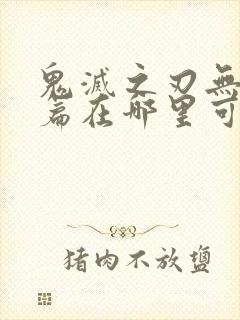 鬼滅之刃無
篇在哪里可
猪肉不放鹽